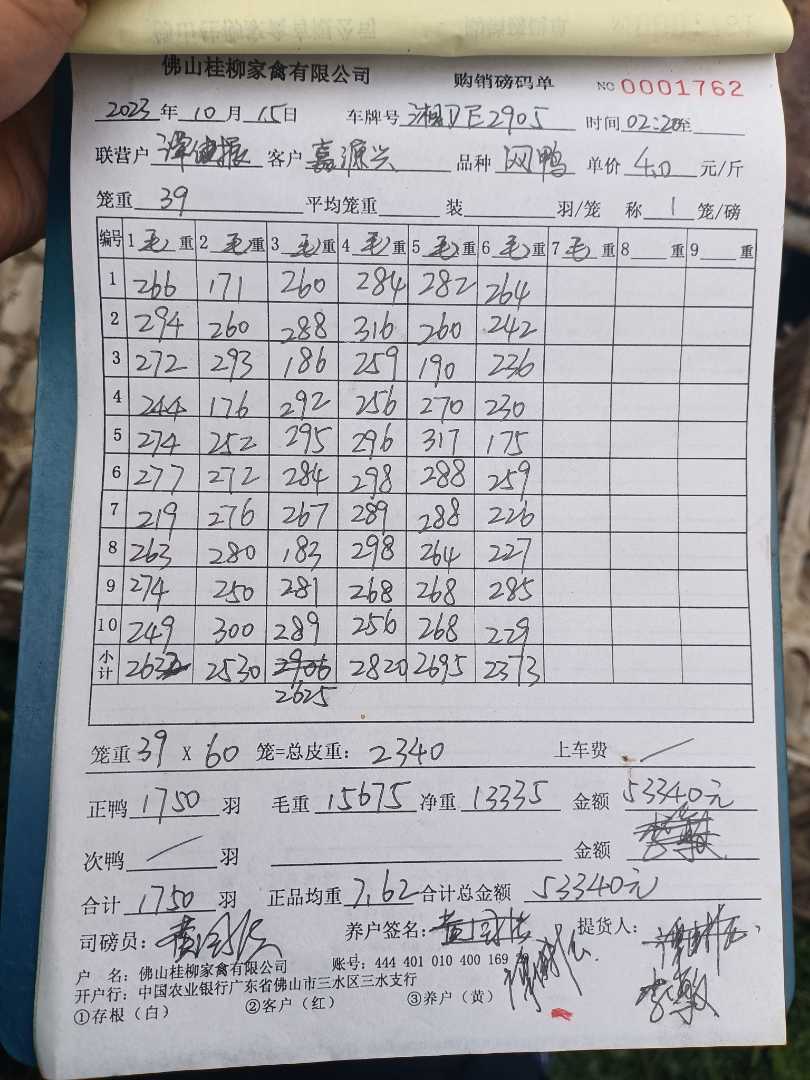 佛山桂柳家禽有限公司 购销磅码单 NO 0001762
2023年10月15日 车牌号湘DE2905 时间02:20至
联营户 客户嘉源兴 品种网鸭 单价4.0元/斤
笼重39 平均笼重 装 羽/笼 称1笼/磅
编号 1毛重 2毛重 3毛重 4毛重 5毛重 6毛重 7毛重 8 重 9 重
1 266 171 260 284 282 264
2 294 260 288 316 260 242
3 272 293 186 259 190 236
4 244 176 292 256 270 230
5 274 252 295 296 317 175
6 277 272 284 298 288 259
7 219 276 267 289 288 226
8 263 280 183 298 264 227
9 274 250 281 268 268 285
10 249 300 289 256 268 229
小计 2632 2530 2906 2820 2695 2373
2625
笼重39X60笼=总皮重：2340 上车费
正鸭1750羽 毛重15675净重13335 金额53340元
次鸭 羽 金额
合计1750羽 正品均重7.62合计总金额53340元
司磅员： 养户签名： 提货人：
户 名：佛山桂柳家禽有限公司 账号：444 401 010 400 169
开户行：中国农业银行广东省佛山市三水区三水支行
①存根（白） ②客户（红） ③养户（黄）